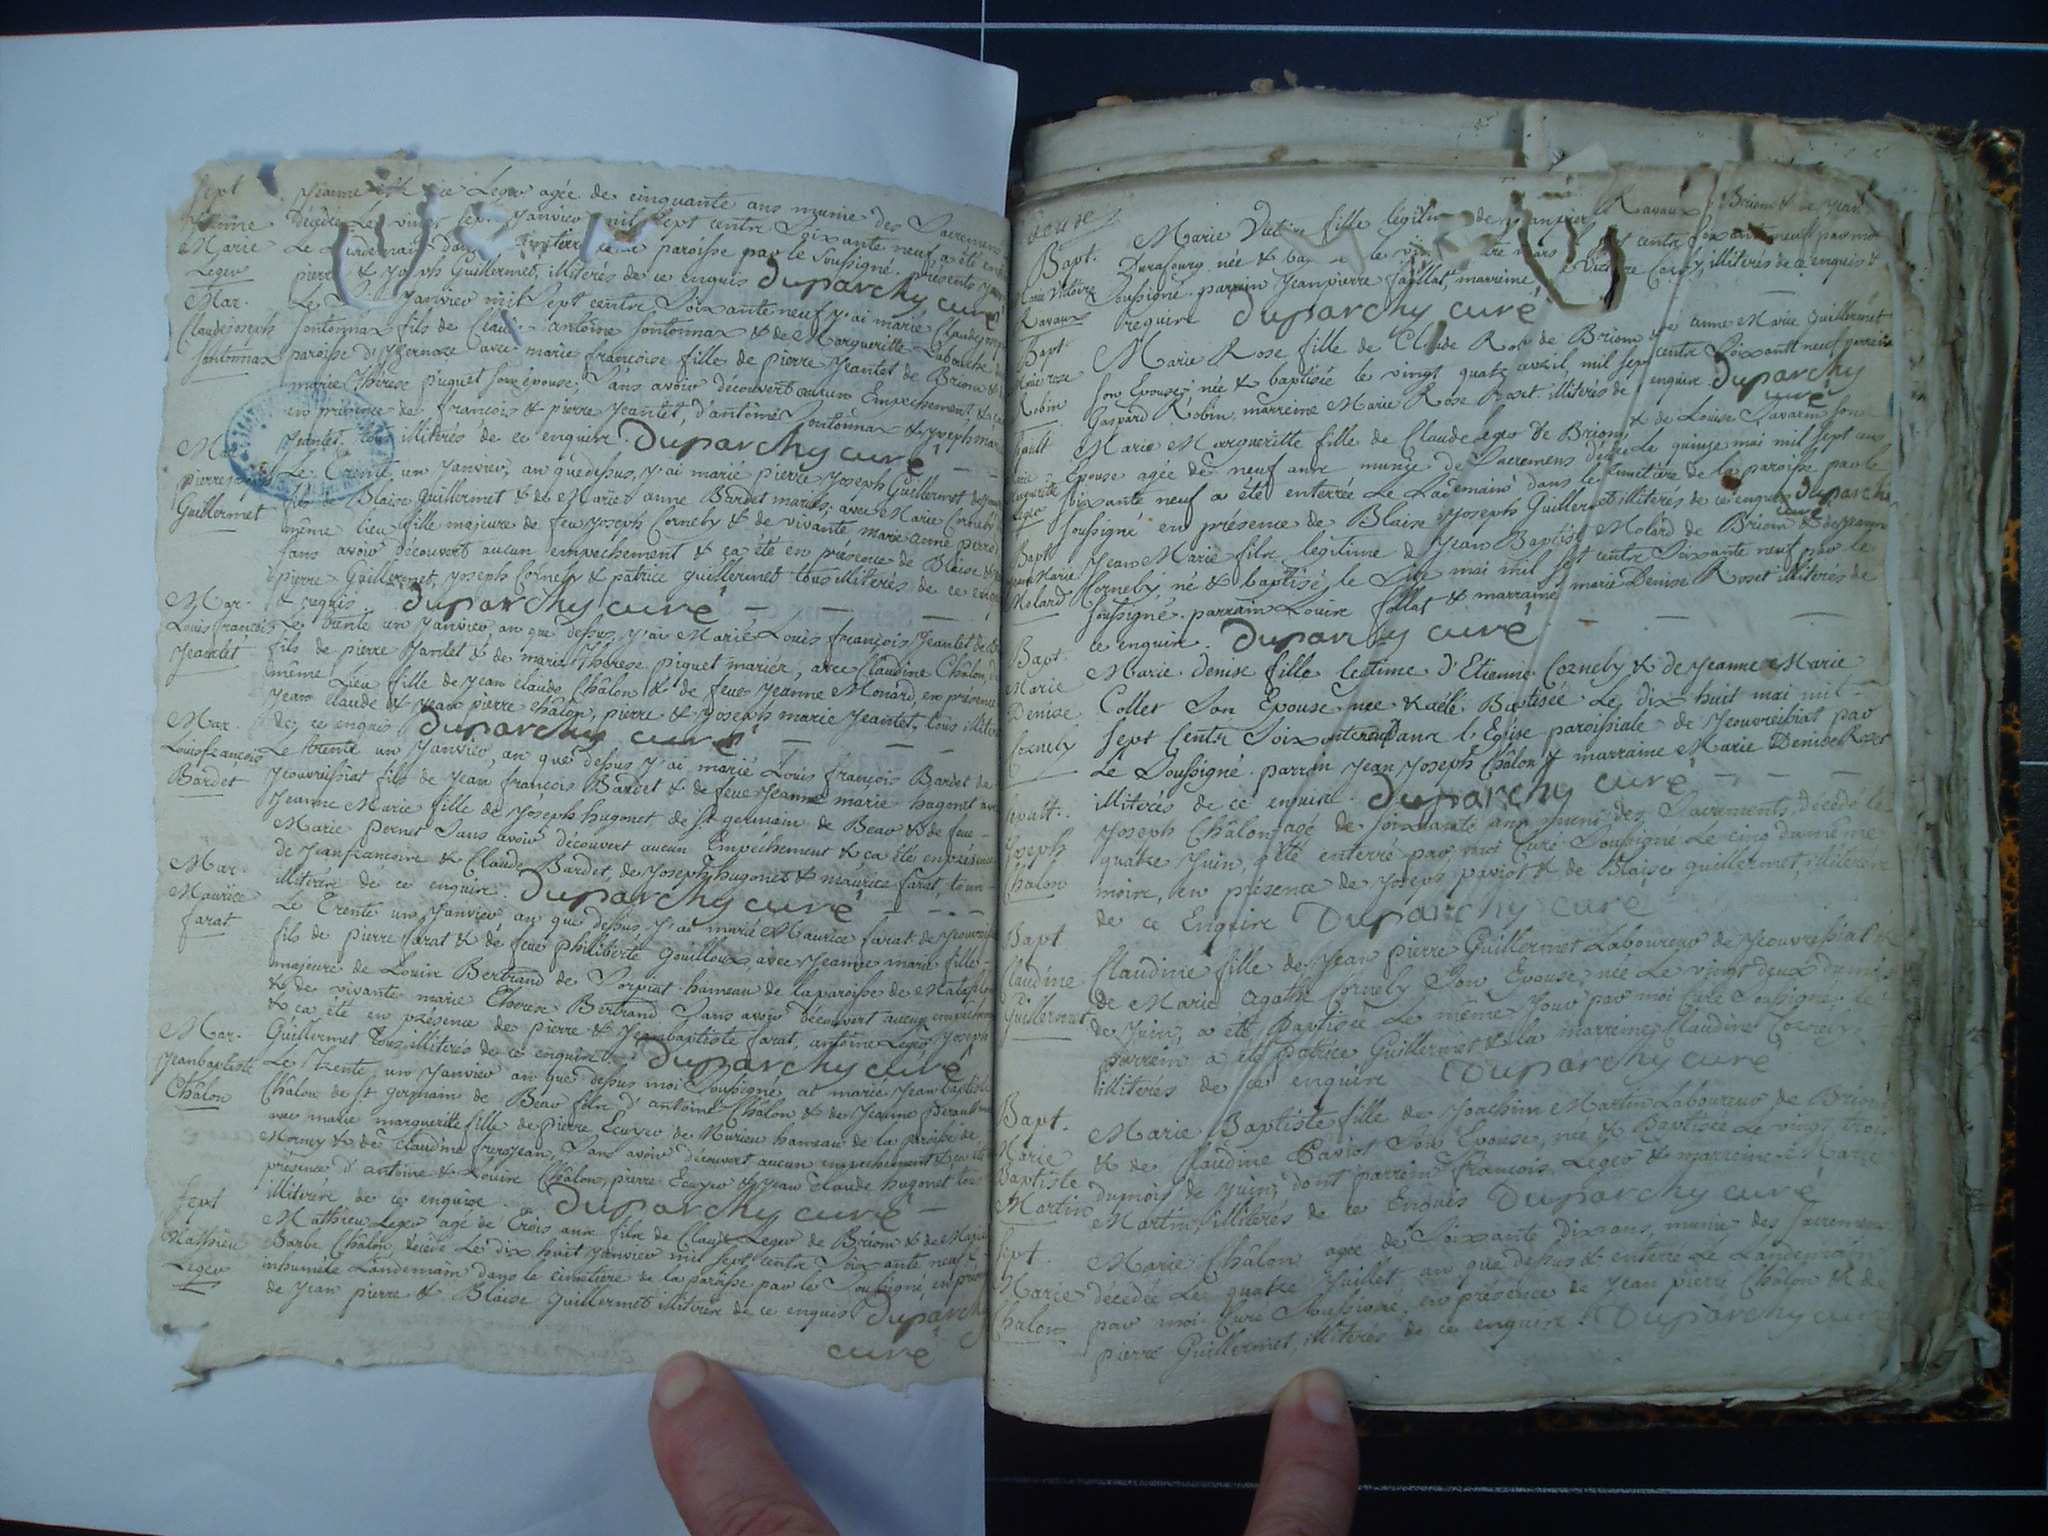 Sept
Jeanne
Marie
Leger
Jeanne Marie Leger agée de cinquante ans munie des Sacremens
Decédée Le vingt sept Janvier mil sept centr Soixante neuf a été
Le Lendemain paroisse par le Soussigné. présents
pierre & Joseph Guillermet, illiterés de ce enquis Duparchy curé
Mar.
Claudejoseph
Sontonnax
Le Janvier mil Sept centr Soixante neuf J'ai marié Claude joseph
Sontonnax fils de Claude antoine Sontonnax & de Margueritte Labouche
paroisse d'Izernore avec marie francoise fille de pierre Jeantet de Briom &
marie Thérèse piquet Son épouse; Sans avoir découvert aucun Empechement,
en présence de francois & pierre Jeantet, d'antoine Sontonnax & Joseph marie
Jeantet tous illiterés de ce enquire. Duparchy curé
Mar.
pierre joseph
Guillermet
Le Trente un Janvier, an que dessus, J'ai marié pierre Joseph Guillermet
fils de Blaise Guillermet & de Marie anne Bardet mariés; avec Marie Cornely
même lieu fille majeure de feu Joseph Cornely & de vivante marie anne
Sans avoir découvert aucun empechement & ça été en présence de Blaise &
pierre Guillermet, Joseph Cornely & patrice Guillermet tous illiterés de ce
& requis. Duparchy curé
Mar.
Louis françois
Jeantet
Le trente un Janvier, an que dessus, J'ai Marié Louis françois Jeantet de
fils de pierre Jeantet & de marie Thérese piquet mariés, avec Claudine Châlon,
même Lieu fille de Jean claude Châlon & de feue Jeanne Monard, en présence
Jean Claude & Jean pierre Châlon, pierre & Joseph marie Jeantet, tous
de ce enquis Duparchy curé
Mar.
Louis francois
Bardet
Le trente un Janvier, an que dessus J'ai marié Louis françois Bardet de
Jeouvressiat fils de Jean françois Bardet & de feue Jeanne marie hugonet
Jeanne Marie fille de Joseph hugonet de St. germain de Beau & de feue
Marie pernet Sans avoir découvert aucun Empéchement & ça été en présence
de Jeanfrancoire & Claude Bardet, de Joseph hugonet & maurice farat, tous
illiterér de ce enquire. Duparchy curé
Mar.
Maurice
farat
Le Trente un Janvier an que dessus J'ai marié Maurice farat de
fils de pierre farat & de feue philiberte Gouilloux, avec Jeanne marie fille
majeure de Louin Bertrand de Sorpiat hameau de la paroisse de Matafelon
& de vivante marie Therese Bertrand Sans avoir découvert aucun
& ça été en présence de pierre & Jeanbaptiste farat, antoine Leger, Joseph
Guillermet tous illiterés de ce enquire Duparchy curé
Mar.
Jeanbaptiste
Châlon
Le Trente, un Janvier an que dessus moi Soussigné ai marié Jean baptiste
Châlon de St germain de Beau filr d'antoine Châlon & de Jeanne
avec marie margueritte fille de pierre Ecuyer de Nurieu hameau de la paroisse de
Mornay & de Claudine frerejean, Sans avoir découvert aucun empechement &
présence d'antoine & Louire Châlon, pierre Ecuyer & Jean Claude hugonet
illiterér de ce enquire. Duparchy curé
Sept
Mathieu
Leger
Mathieu Leger agé de Trois anr filr de Claude Leger de Briom & de
Barbe Châlon, décédé Le dix huit Janvier mil sept centr Soixante neuf &
inhumé le Landemain dans le cimetiere de la paroisse par le Soussigné, en
de Jean pierre & Blaise Guillermet illiterér de ce enquis Duparchy
curé
Bapt.
Marie Victoire
Ravaux
Marie Victoire fille légitime de Jeanpierre Ravaux Briom & de Jeanne
née & le Mars centr Soixante neuf par moi
Soussigné. parrain Jeanpierre Jaillat, marreine illiterés de ce enquis &
require Duparchy curé
Bapt.
Marie rose
Robin
Marie Rose fille de Claude Rob de Briom & anne Marie Guillermet
Son Epouse, née & baptisée le vingt quatre avril, mil sept centr Soixante neuf parrain
Gaspard Robin, marreine Marie Rose Roset. illiterés de enquire Duparchy
curé
Margueritte
Leger
Marie Margueritte fille de Claude Leger de Briom, & de Louise Savarin Son
Epouse agée de neuf anr munie de Sacremens Le quinze mai mil sept
Soixante neuf a été enterrée Le Lademain dans le cimetière de la paroisse par le
Soussigné en présence de Blaise & Joseph Guillermet illiterés de ce enquis Duparchy
curé
Bapt
Jean Marie
Molard
Jean Marie filr legitime de Jean Baptist Molard de Briom & de Jeanne
Cornely né & baptisé, le mai mil sept centr Soixante neuf par le
Soussigné. parrain Louis follat & marraine marie Denise Roset illiterés de
ce enquire. Duparchy curé
Bapt.
Marie
Denise
Cornely
Marie Denise fille legtime d'Etienne Cornely & de Jeanne Marie
Collet Son Epouse née & aété Baptisée Le dix huit mai mil
Sept Centr Soixante Danr l'Eglise paroissiale de Jeouvressiat par
Le Soussigné. parrain Jean Joseph Châlon & marraine Marie Denise Roset
illiterés de ce enquire. Duparchy curé
Joseph
Chalon
Joseph Châlon, agé de Soixante anr muni des Sacrements, décédé le
quatre Juin, a été enterré par moi Curé Soussigné Le cinq du même
moire, en présence de Joseph paviot & de Blaise Guillermet, illiterér
de ce Enquire Duparchy curé
Bapt
Claudine
Guillermet
Claudine fille de Jean pierre Guillermet Laboureur de Jeouvressiat &
de Marie agathe Cornely Son Epouse, née Le vingt deux du mois
de Juin, a été Baptisée Le même Jour par moi Curé Soussigné. Le
parrein a été patrice Guillermet & la marreine Claudine Cornely
illiterés de ce enquire Duparchy curé
Bapt.
Marie
Baptiste
Martin
Marie Baptiste fille de Joachim Martin Laboureur de Briom
& de Claudine Paviot Son Epouse, née & Baptisée Le vingt troi
du mois de Juin, dont parrein francois Leger & marreine Marie
Martin, illiterés de ce Enquis Duparchy curé
Sept.
Marie
Chalon
Marie Châlon agée de Soixante Dix ans, munie des Sacremens
decedée Le quatre Juillet an que dessus & enterre Le Landemain
par moi Curé Soussigné, en présence de Jean pierre Châlon & de
pierre Guillermet, illiterés de ce enquire. Duparchy curé